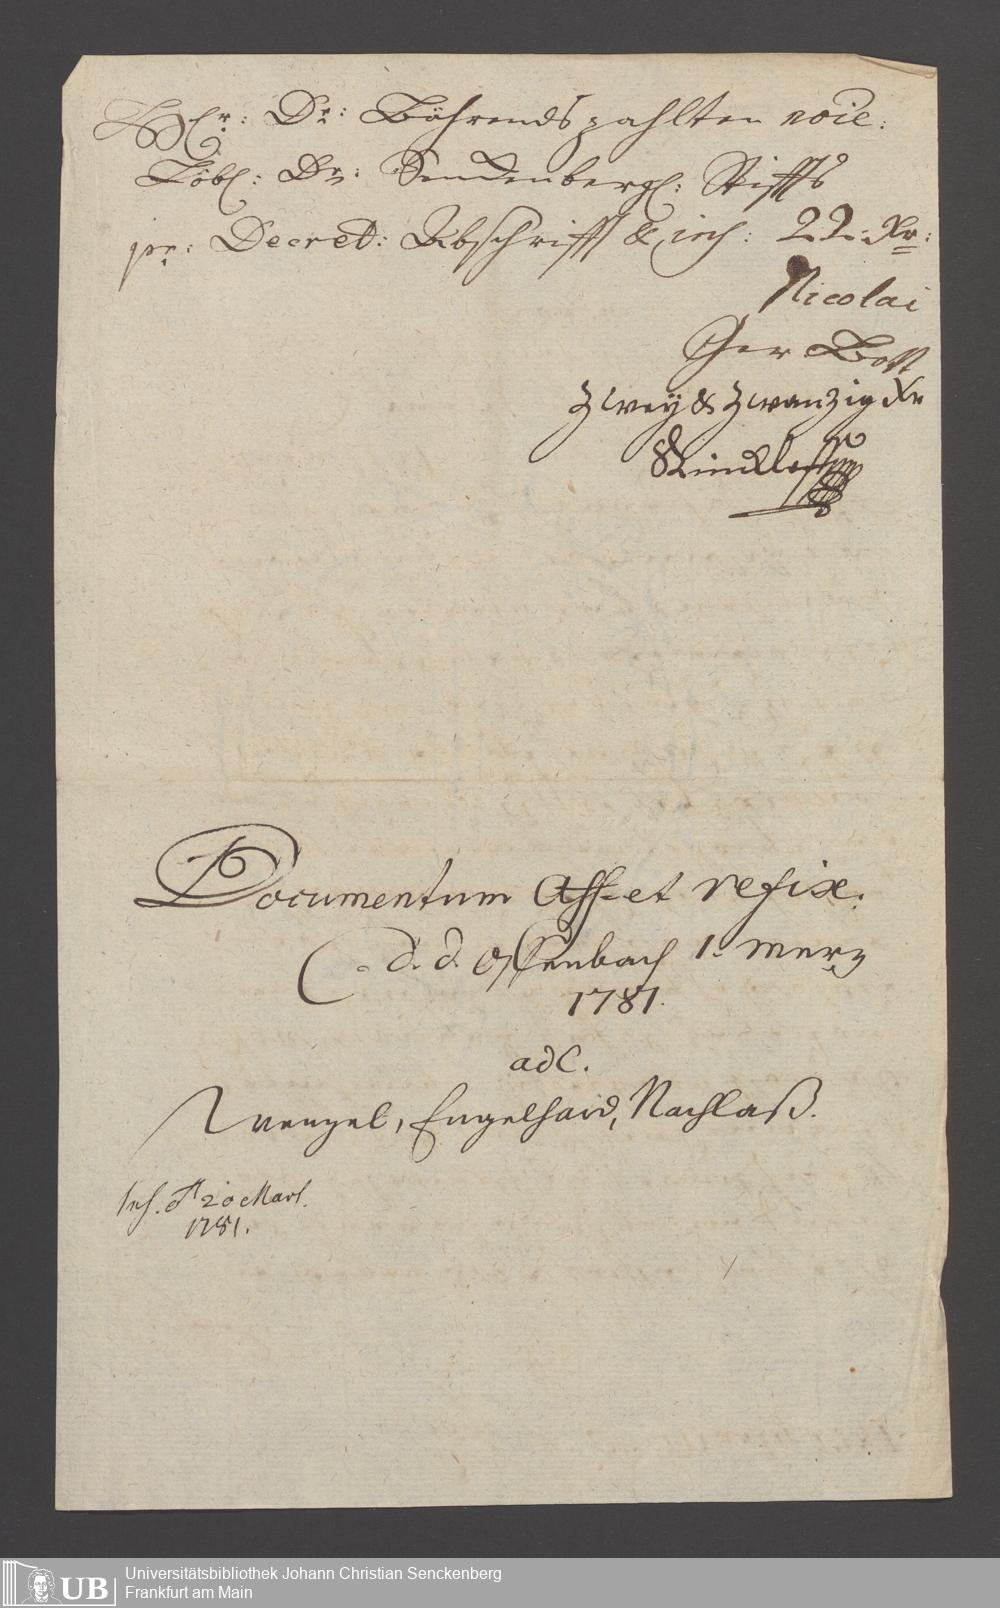 Hr: Dr: Böhrends zahlten noie:
Löbl: Dr: Senckenbergl: Stiffts
pr: Decret: Abschrifft & insh: 22. Xr:
Nicolai
Ger Bott
Zwey & Zwanzig Xr
Documentum Aff- et refix:
d. d. Offenbach 1. Merz
1781.
ad C.
Wenzel, Engelhard, Nachlaß.
Ins. d 20 Mart.
1781.
UB
Universitätsbibliothek Johann Christian Senckenberg
Frankfurt am Main